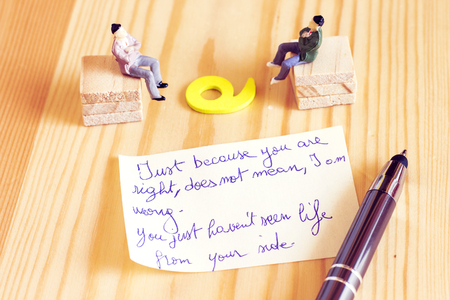 Just because you are
right, does not mean, I am
wrong.
You just haven't seen life
from your side.